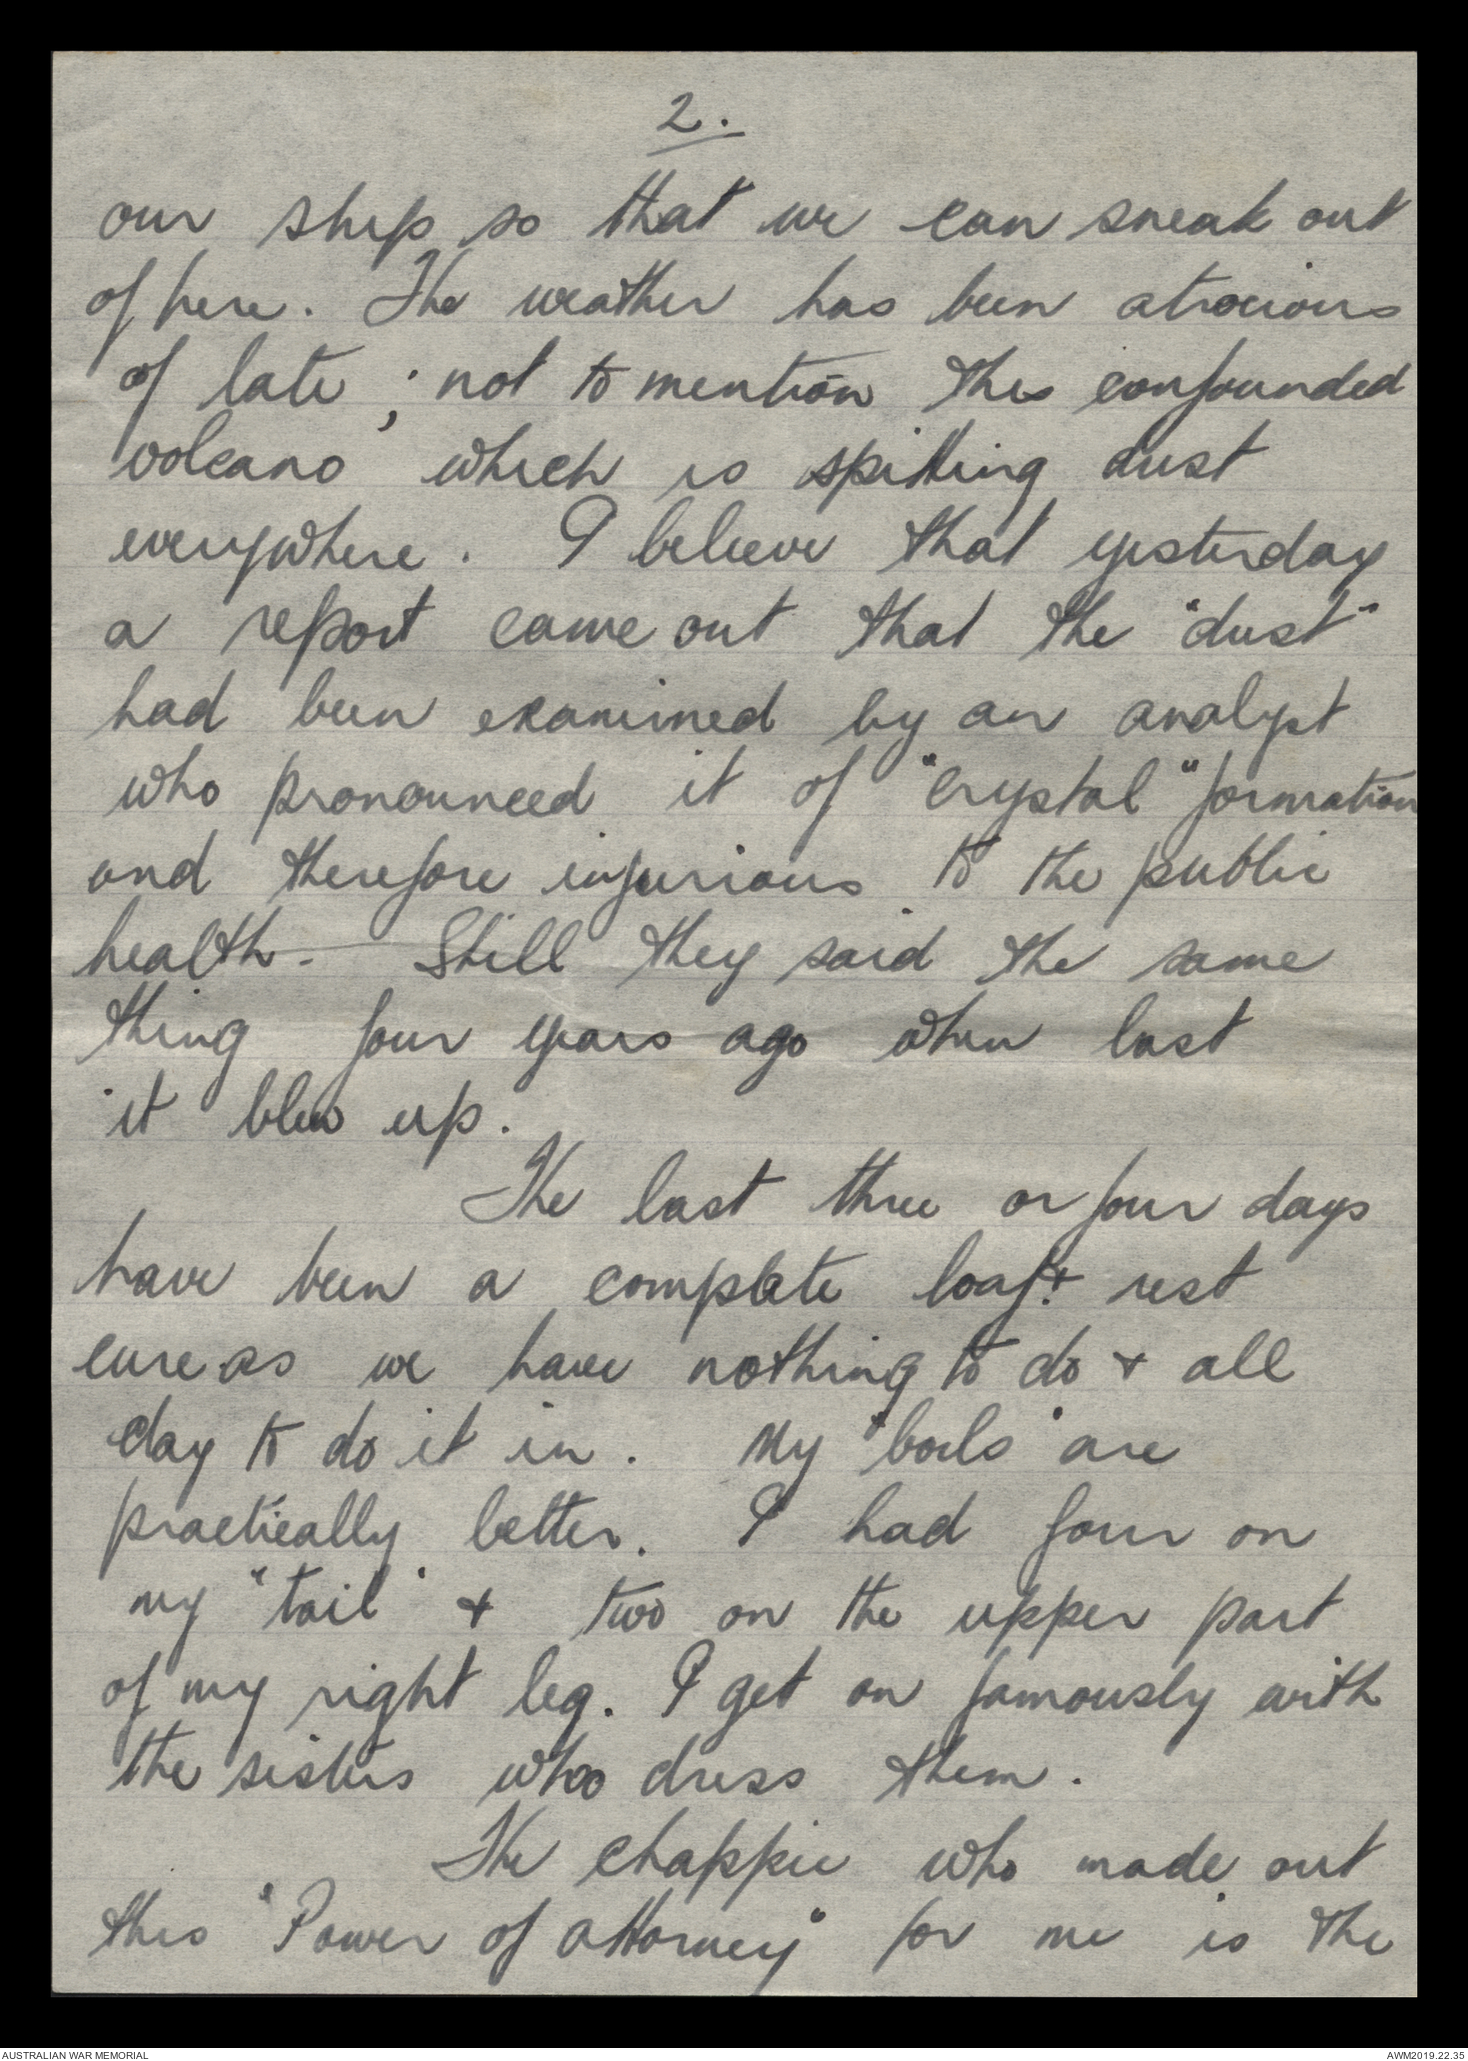 2.
our ship so that we can sneak out
of here. The weather has been atrocious
of late; not to mention this confounded
volcano which is spitting dust
everywhere. I believe that yesterday
a report came out that the "dust"
had been examined by an analyst
who pronounced it of "crystal" formation
and therefore injurious to the public
health. Still they said the same
thing four years ago when last
it blew up.
The last three or four days
have been a complete loaf & rest
cure as we have nothing to do & all
day to do it in. My "boils" are
practically better. I had four on
my "tail" & two on the upper part
of my right leg. I get on famously with
the sisters who dress them.
The chappie who made out
this "Power of Attorney" for me is the
AUSTRALIAN WAR MEMORIAL
AWM2019.22.35